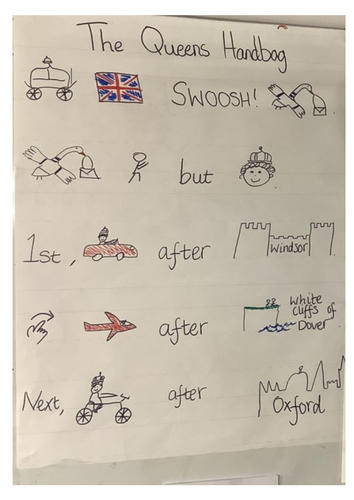 The Queens Handbag
SWOOSH!
but
1st, after Windsor
after White
Cliffs of
Dover
Next, after Oxford